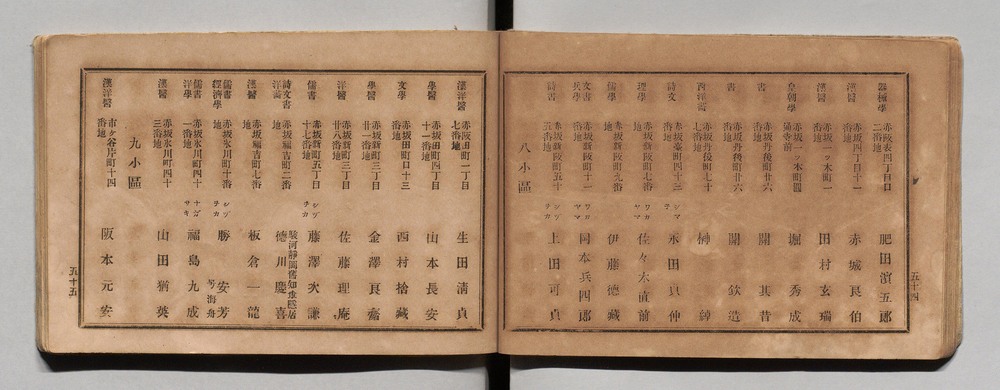 器械學 赤坂表四丁目口二番地 肥田濱五郎
漢醫 赤坂四丁目十一番地 赤城良伯
漢醫 赤坂一ッ木町一番地 田村玄瑞
皇朝學 赤坂一ッ木町圓通寺前 堀秀成
書 赤坂丹後町廿六番地 關其昔
書 赤坂丹後町廿六番地 關欽造
西洋書 赤坂丹後町七十七番地 榊綽
詩文 赤坂臺町四十三番地 シマチ 永田貞仲
理學 赤坂新阪町七番地 ワカヤマ 佐々木直前
儒學 赤坂新阪町九番地 伊藤德藏
文書 兵學 赤坂新阪町十一番地 ワカヤマ 岡本兵四郎
詩書 赤坂新阪町五十五番地 シヅチカ 上田可貞
八小區
五十四
漢洋醫 赤阪田町一丁目七番地 生田清貞
學醫 赤坂田町四丁目十一番地 山本長安
文學 赤坂田町口十三番地 西村捨藏
學醫 赤坂新町三丁目廿一番地 金澤良齋
洋醫 赤八新町三丁目廿八番地 佐藤理庵
儒書 赤坂新町五丁目十七番地 シヅチカ 藤澤次謙
詩文書 洋籌 赤坂福吉町二番地 駿河靜岡舊知事隱居 德川慶喜
漢醫 赤坂福吉町七番地 板倉一龍
儒書 經濟學 赤坂氷川町十番地 シヅチカ 勝安芳 号海舟
儒書 洋學 赤坂氷川町四十一番地 ナガサキ 福島九成
漢醫 赤坂氷川町四十三番地 山田猶英
九小區
漢洋醫 市ケ谷片町十四番地 阪本元安
五十五